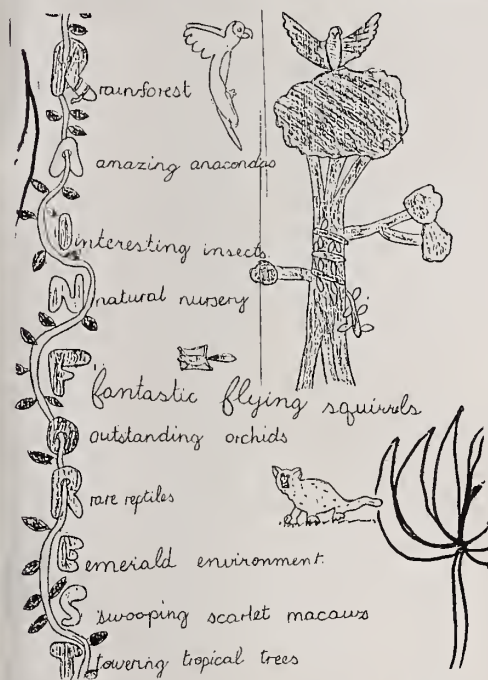 R rainforest
A amazing anacondas
I interesting insects.
N natural nursery
F fantastic flying squirrels
O outstanding orchids
R rare reptiles
E emerald environment.
S swooping scarlet macaws
T towering tropical trees